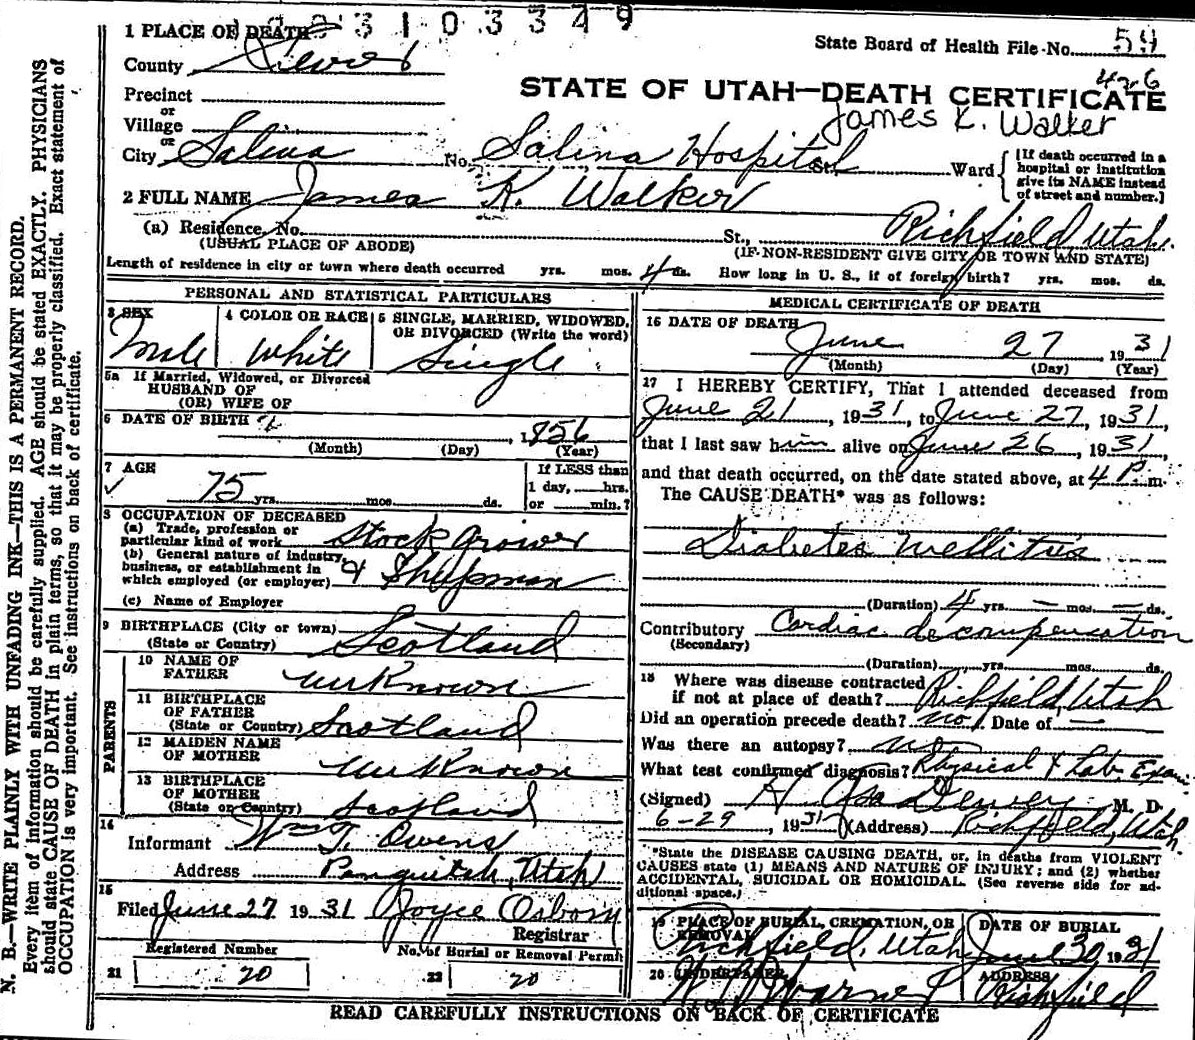 3103349
1 PLACE OF DEATH
State Board of Health File No. 59
County Sevier
426
STATE OF UTAH—DEATH CERTIFICATE
Precinct
or
Village
James K. Walker
or
City Salina No. Salina Hospital St. Ward
[If death occurred in a
hospital or institution
give its NAME instead
of street and number.]
2 FULL NAME James K. Walker
(a) Residence, No. St., Richfield, Utah.
(USUAL PLACE OF ABODE) (IF NON-RESIDENT GIVE CITY OR TOWN AND STATE)
Length of residence in city or town where death occurred yrs. mos. 4 ds. How long in U. S., if of foreign birth? yrs. mos. ds.
PERSONAL AND STATISTICAL PARTICULARS
3 SEX 4 COLOR OR RACE 5 SINGLE, MARRIED, WIDOWED,
OR DIVORCED (Write the word)
Male White Single
5a If Married, Widowed, or Divorced
HUSBAND OF
(OR) WIFE OF
6 DATE OF BIRTH , 1856
(Month) (Day) (Year)
7 AGE If LESS than
1 day, hrs.
75 yrs. mos. ds. or min.?
8 OCCUPATION OF DECEASED
(a) Trade, profession or
particular kind of work Stock grower
(b) General nature of industry,
business, or establishment in
which employed (or employer) & Sheepman
(c) Name of Employer
9 BIRTHPLACE (City or town)
(State or Country) Scotland
PARENTS
10 NAME OF
FATHER unknown
11 BIRTHPLACE
OF FATHER
(State or Country) Scotland
12 MAIDEN NAME
OF MOTHER unknown
13 BIRTHPLACE
OF MOTHER
(State or Country) Scotland
14
Informant Wm T. Owens
Address Panguitch, Utah
15
Filed June 27 1931 Joyce Osborn
Registrar
Registered Number No. of Burial or Removal Permit
21 20 22 20
MEDICAL CERTIFICATE OF DEATH
16 DATE OF DEATH
June 27, 1931
(Month) (Day) (Year)
17 I HEREBY CERTIFY, That I attended deceased from
June 21, 1931, to June 27, 1931,
that I last saw him alive on June 26, 1931,
and that death occurred, on the date stated above, at 4 P. m.
The CAUSE DEATH* was as follows:
Diabetes Mellitus
(Duration) 4 yrs. — mos. — ds.
Contributory Cardiac decompensation
(Secondary)
(Duration) yrs. mos. ds.
18 Where was disease contracted
if not at place of death? Richfield, Utah
Did an operation precede death? no. Date of —
Was there an autopsy? no
What test confirmed diagnosis? Physical & Lab. Exam.
(Signed) H. Asa Dewey M. D.
6-29, 1931 (Address) Richfield, Utah.
*State the DISEASE CAUSING DEATH, or, in deaths from VIOLENT
CAUSES state (1) MEANS AND NATURE OF INJURY; and (2) whether
ACCIDENTAL, SUICIDAL OR HOMICIDAL. (See reverse side for ad-
ditional space.)
19 PLACE OF BURIAL, CREMATION, OR
REMOVAL DATE OF BURIAL
Richfield, Utah June 30 1931
20 UNDERTAKER ADDRESS
Warner Richfield
READ CAREFULLY INSTRUCTIONS ON BACK OF CERTIFICATE
N. B.—WRITE PLAINLY WITH UNFADING INK—THIS IS A PERMANENT RECORD.
Every item of information should be carefully supplied. AGE should be stated EXACTLY. PHYSICIANS
should state CAUSE OF DEATH in plain terms, so that it may be properly classified. Exact statement of
OCCUPATION is very important. See instructions on back of certificate.